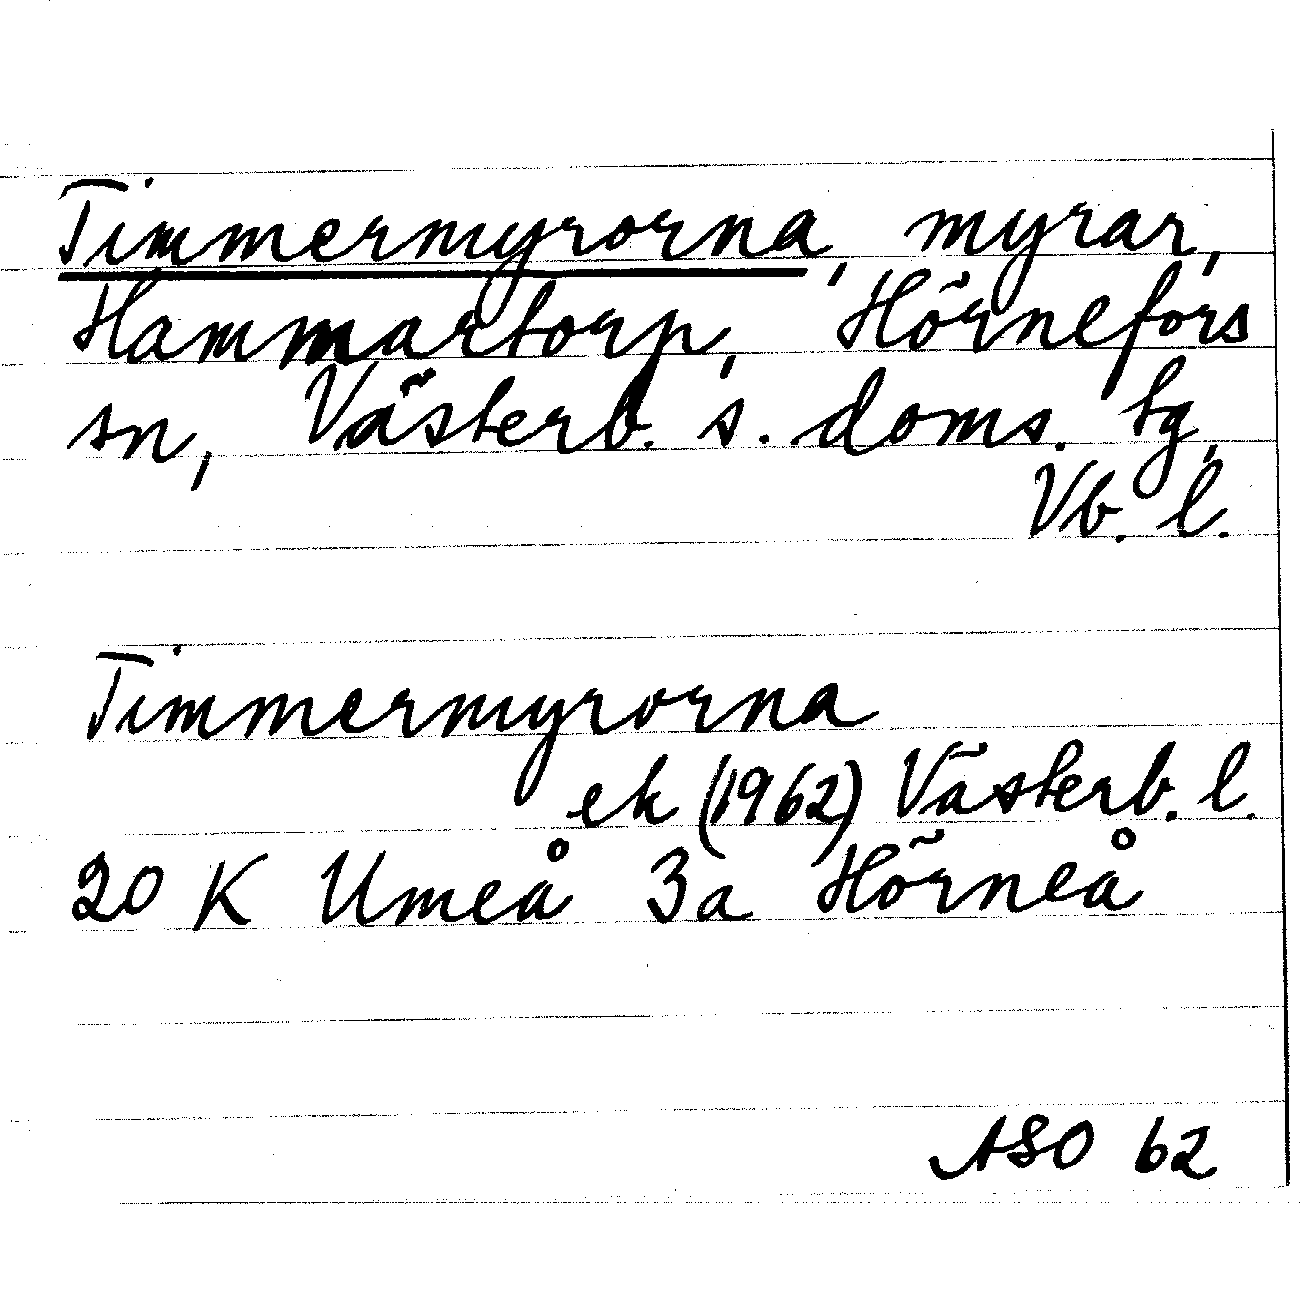 Timmermyrorna, myrar,
Hammartorp, Hörnefors
sn, Västerb. s. doms. tg,
Vb. l.
Timmermyrorna
ek (1962) Västerb. l.
20 K Umeå 3a Hörneå
ASO 62